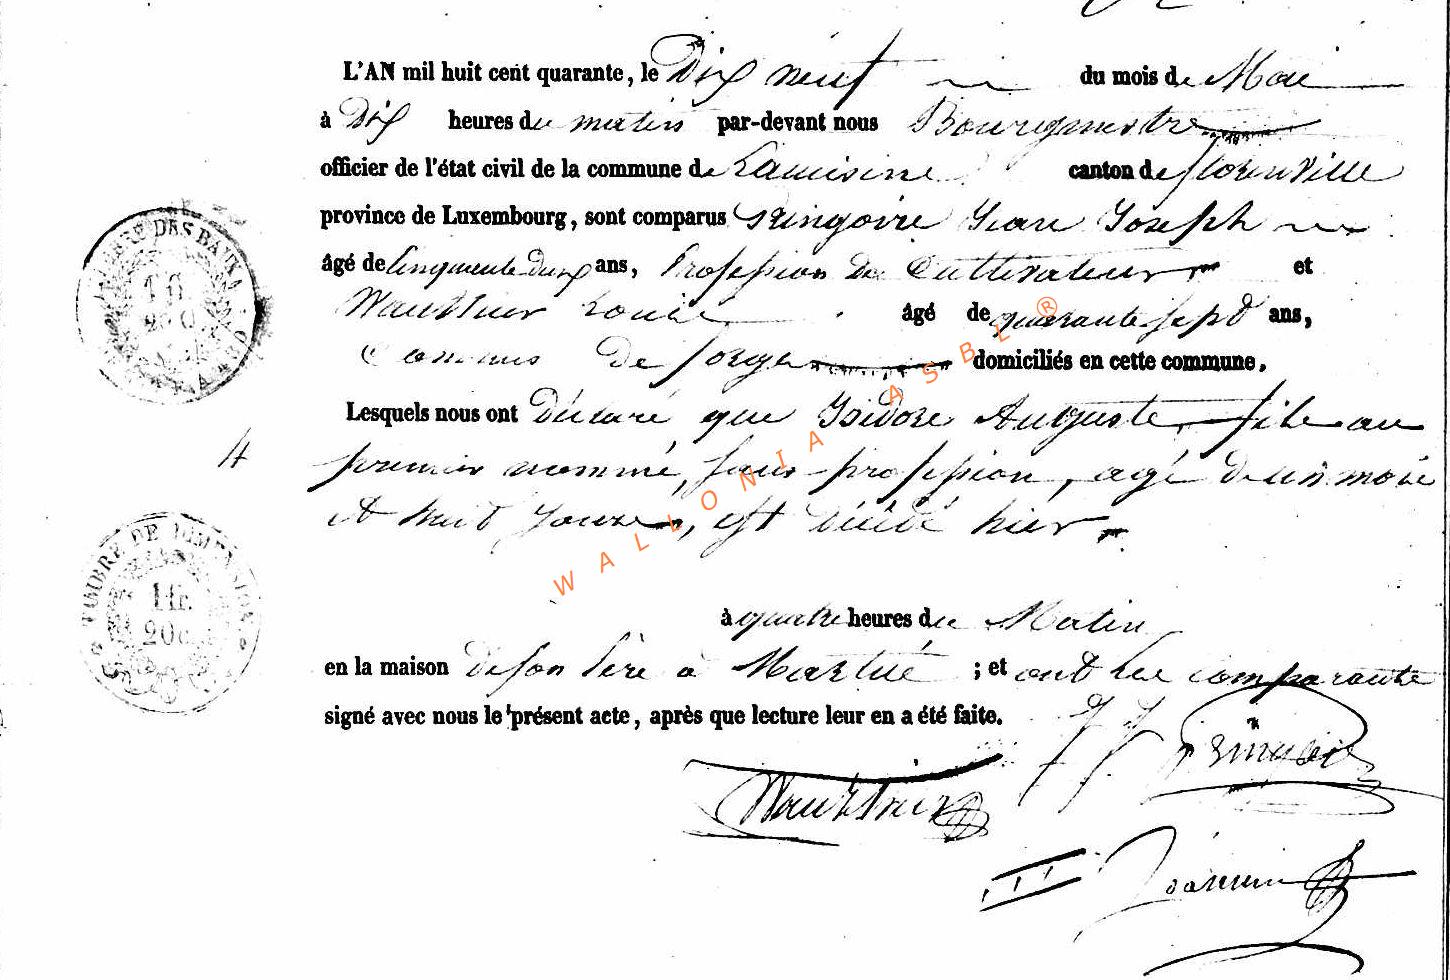 L'AN mil huit cent quarante, le Dix neuf du mois de Mai
à Dix heures du matin par-devant nous Bourgmestre
officier de l'état civil de la commune de Lacuisine canton de florenville
province de Luxembourg, sont comparus Pringoire Jean Joseph
âgé de Cinquante deux ans, Profession de Cultivateur et
Wauthier Louis âgé de quarante sept ans,
Commis de forge domiciliés en cette commune,
Lesquels nous ont Déclaré que Isidore Auguste, fils au
premier nommé, sans profession, agé de un mois
et huit jours, est décédé hier
4
à quatre heures du Matin
en la maison de son Père à Martué ; et ont les comparants
signé avec nous le présent acte, après que lecture leur en a été faite.
Wauthier
TIMBRE DE DIMENSION
1 fr.
20 c.
WALLONIA ASBL ®